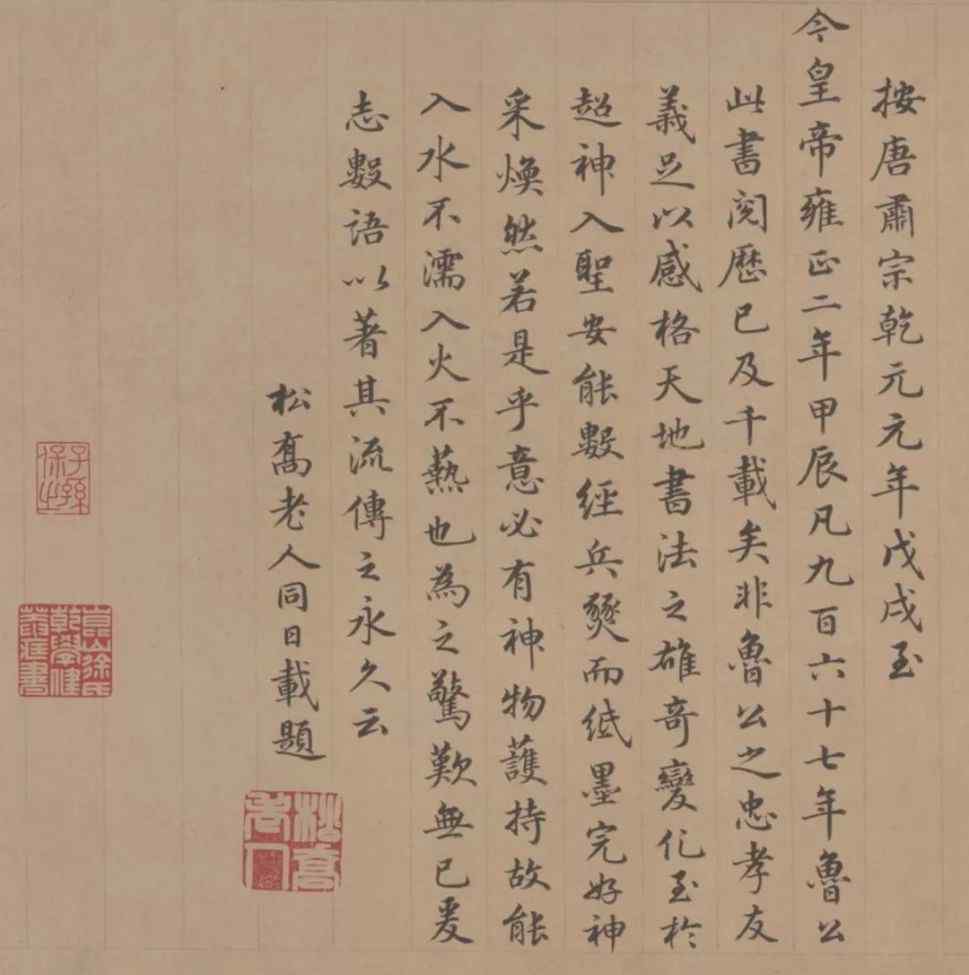 按唐肅宗乾元元年戊戌至
今皇帝雍正二年甲辰凡九百六十七年魯公
此書閱歷已及千載矣非魯公之忠孝友
義足以感格天地書法之雄奇變化至於
超神入聖安能數經兵燹而紙墨完好神
采煥然若是乎意必有神物護持故能
入水不濡入火不爇也為之驚歎無已爰
志數語以著其流傳之永久云
松喬老人同日載題
子孫保之
崑山徐氏乾學健菴珍書